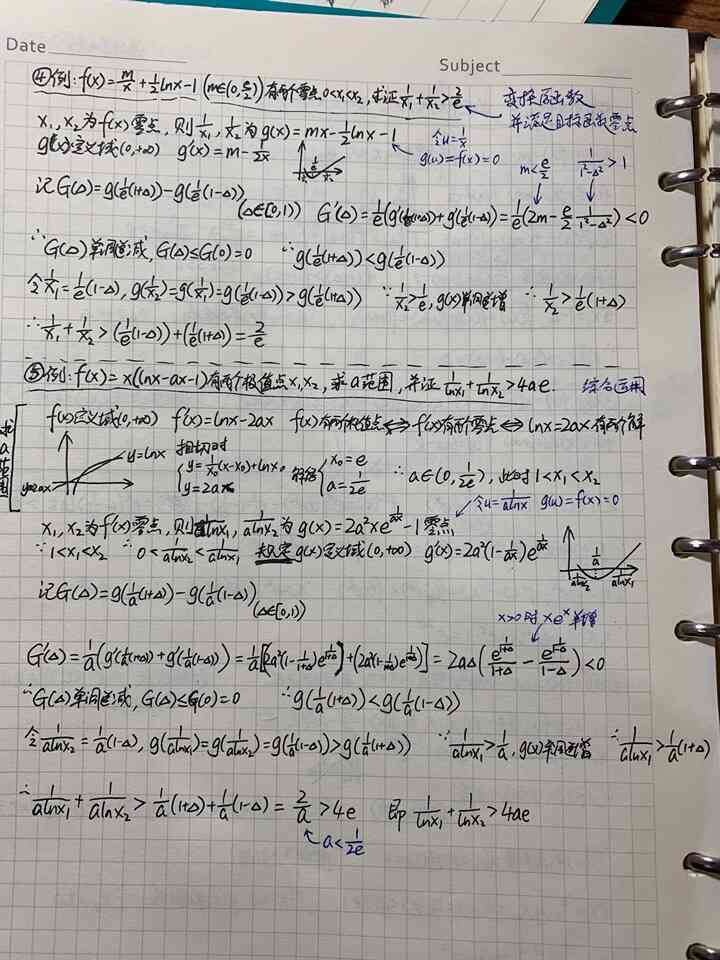 Date
Subject
④例: f(x)=m/x+1/2lnx-1 (m∈(0,e/2))有两个零点0<x₁<x₂, 求证1/x₁+1/x₂>2/e
变换原函数
并满足目标函数零点
x₁, x₂为f(x)零点, 则1/x₁, 1/x₂为g(x)=mx-1/2lnx-1
令u=1/x
g(u)=f(x)=0
g(x)定义域(0,+∞) g'(x)=m-1/2x
m<e/2 1/(1²-Δ²)>1
记G(Δ)=g(1/e(1+Δ))-g(1/e(1-Δ))
(Δ∈[0,1)) G'(Δ)=1/e(g'(1/e(1+Δ))+g'(1/e(1-Δ))=1/e(2m-e/2 1/(1²-Δ²))<0
∴G(Δ)单调递减, G(Δ)≤G(0)=0 ∴g(1/e(1+Δ))<g(1/e(1-Δ))
令1/x₁=1/e(1-Δ), g(1/x₂)=g(1/x₁)=g(1/e(1-Δ))>g(1/e(1+Δ)) ∵1/x₂>1/e, g(x)单调递增 ∴1/x₂>1/e(1+Δ)
∴1/x₁+1/x₂>(1/e(1-Δ))+(1/e(1+Δ))=2/e
⑤例: f(x)=x(lnx-ax-1)有两个极值点x₁,x₂, 求a范围, 并证1/lnx₁+1/lnx₂>4ae. 综合运用
求a范围
f(x)定义域(0,+∞) f'(x)=lnx-2ax f(x)有两个极值点⇔f'(x)有两个零点⇔lnx=2ax有两个解
y=lnx
y=2ax
相切时
{y=1/x₀(x-x₀)+lnx₀
y=2ax
解得{x₀=e
a=1/2e
∴a∈(0,1/2e), 此时1<x₁<x₂
x₁, x₂为f'(x)零点, 则1/alnx₁, 1/alnx₂为g(x)=2a²xe^(1/ax)-1零点
令u=1/alnx g(u)=f(x)=0
∵1<x₁<x₂ ∴0<1/alnx₂<1/alnx₁ g(x)定义域(0,+∞) g'(x)=2a²(1-1/ax)e^(1/ax)
1/a
1/alnx₂ 1/alnx₁
记G(Δ)=g(1/a(1+Δ))-g(1/a(1-Δ))
(Δ∈[0,1))
x>0时xe^x单增
G'(Δ)=1/a(g'(1/a(1+Δ))+g'(1/a(1-Δ)))=1/a[(2a²(1-1/(1+Δ))e^(1/(1+Δ)))+(2a²(1-1/(1-Δ))e^(1/(1-Δ)))]=2aΔ(e^(1/(1+Δ))/(1+Δ)-e^(1/(1-Δ))/(1-Δ))<0
∴G(Δ)单调递减, G(Δ)≤G(0)=0 ∴g(1/a(1+Δ))<g(1/a(1-Δ))
令1/alnx₂=1/a(1-Δ), g(1/alnx₁)=g(1/alnx₂)=g(1/a(1-Δ))>g(1/a(1+Δ)) ∵1/alnx₁>1/a, g(x)单调递增 ∴1/alnx₁>1/a(1+Δ)
∴1/alnx₁+1/alnx₂>1/a(1+Δ)+1/a(1-Δ)=2/a>4e 即1/lnx₁+1/lnx₂>4ae
a<1/2e